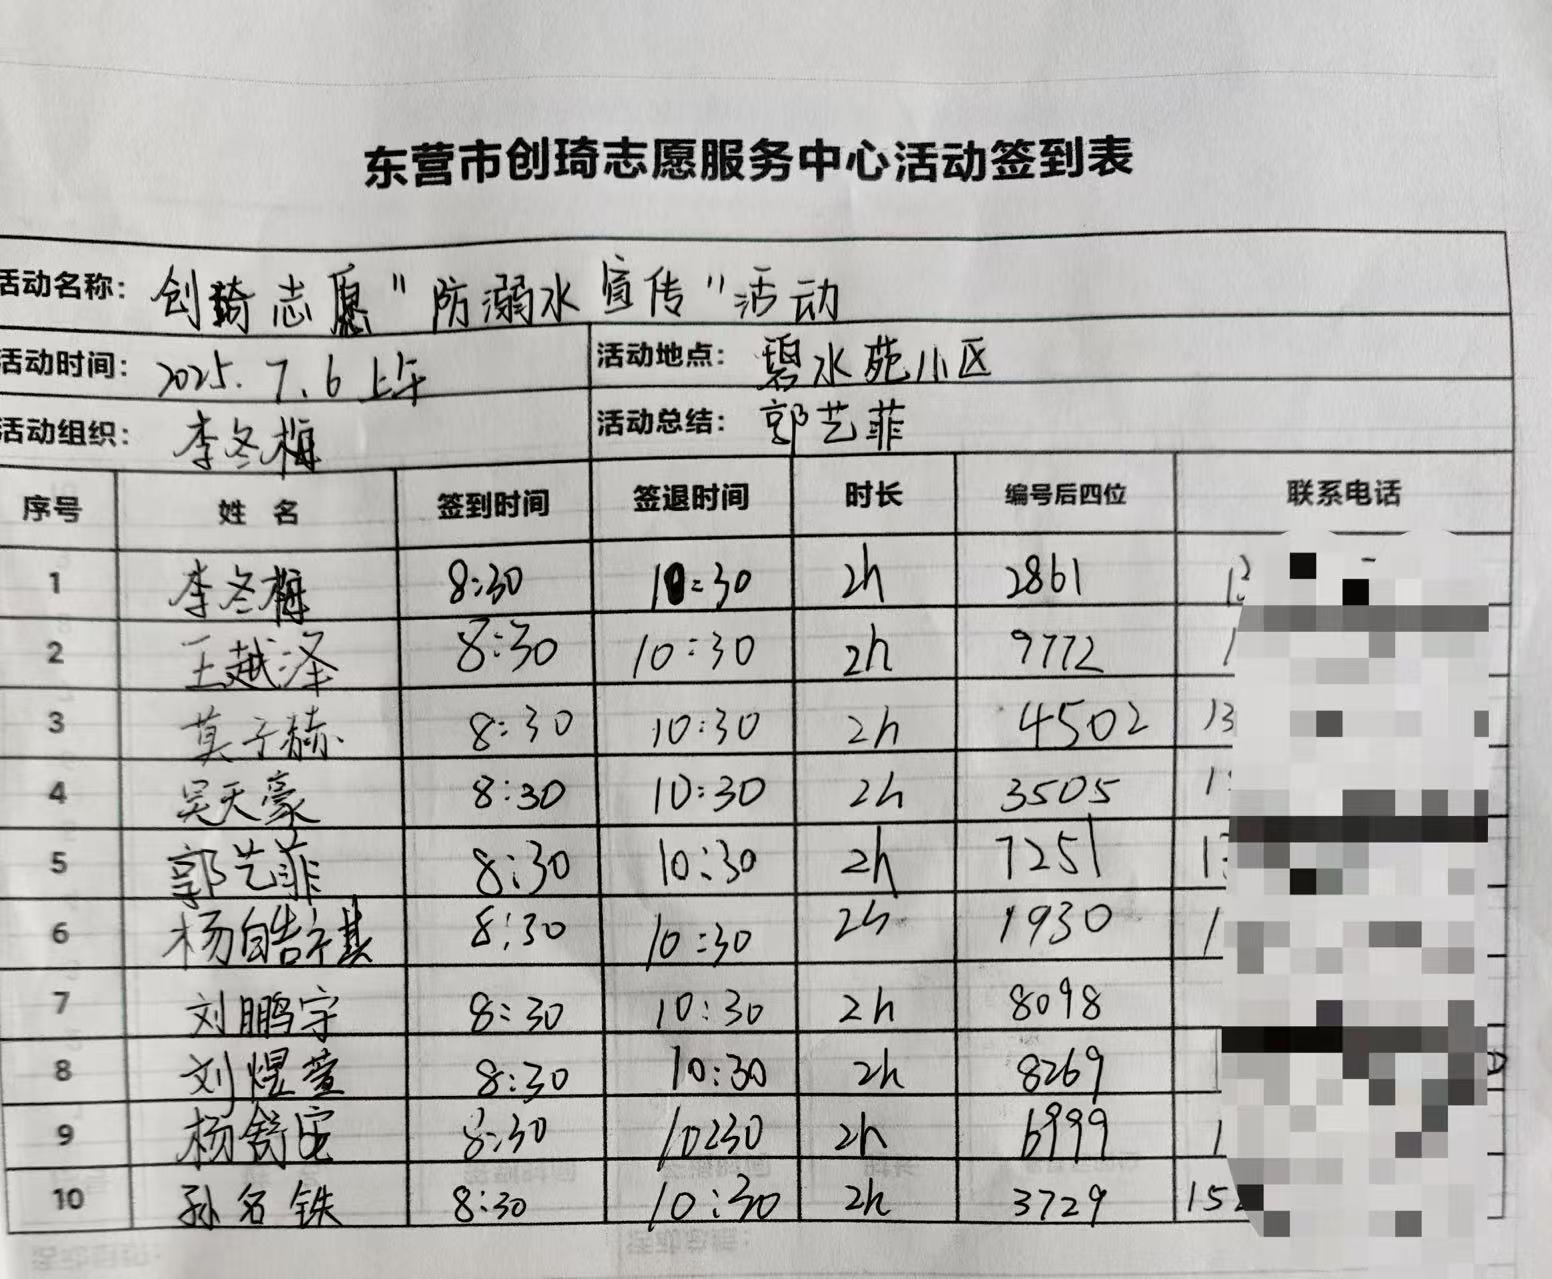 东营市创琦志愿服务中心活动签到表
活动名称： 创琦志愿"防溺水宣传"活动
活动时间： 2025.7.6上午 活动地点： 碧水苑小区
活动组织： 李冬梅 活动总结： 郭艺菲
序号 姓名 签到时间 签退时间 时长 编号后四位 联系电话
1 李冬梅 8:30 10:30 2h 2861
2 王越泽 8:30 10:30 2h 9772
3 莫子赫 8:30 10:30 2h 4502 13
4 吴天豪 8:30 10:30 2h 3505
5 郭艺菲 8:30 10:30 2h 7251
6 杨皓祺 8:30 10:30 2h 1930
7 刘鹏宇 8:30 10:30 2h 8098
8 刘煜萱 8:30 10:30 2h 8269
9 杨舒宝 8:30 10:30 2h 6999
10 孙名铁 8:30 10:30 2h 3729 15